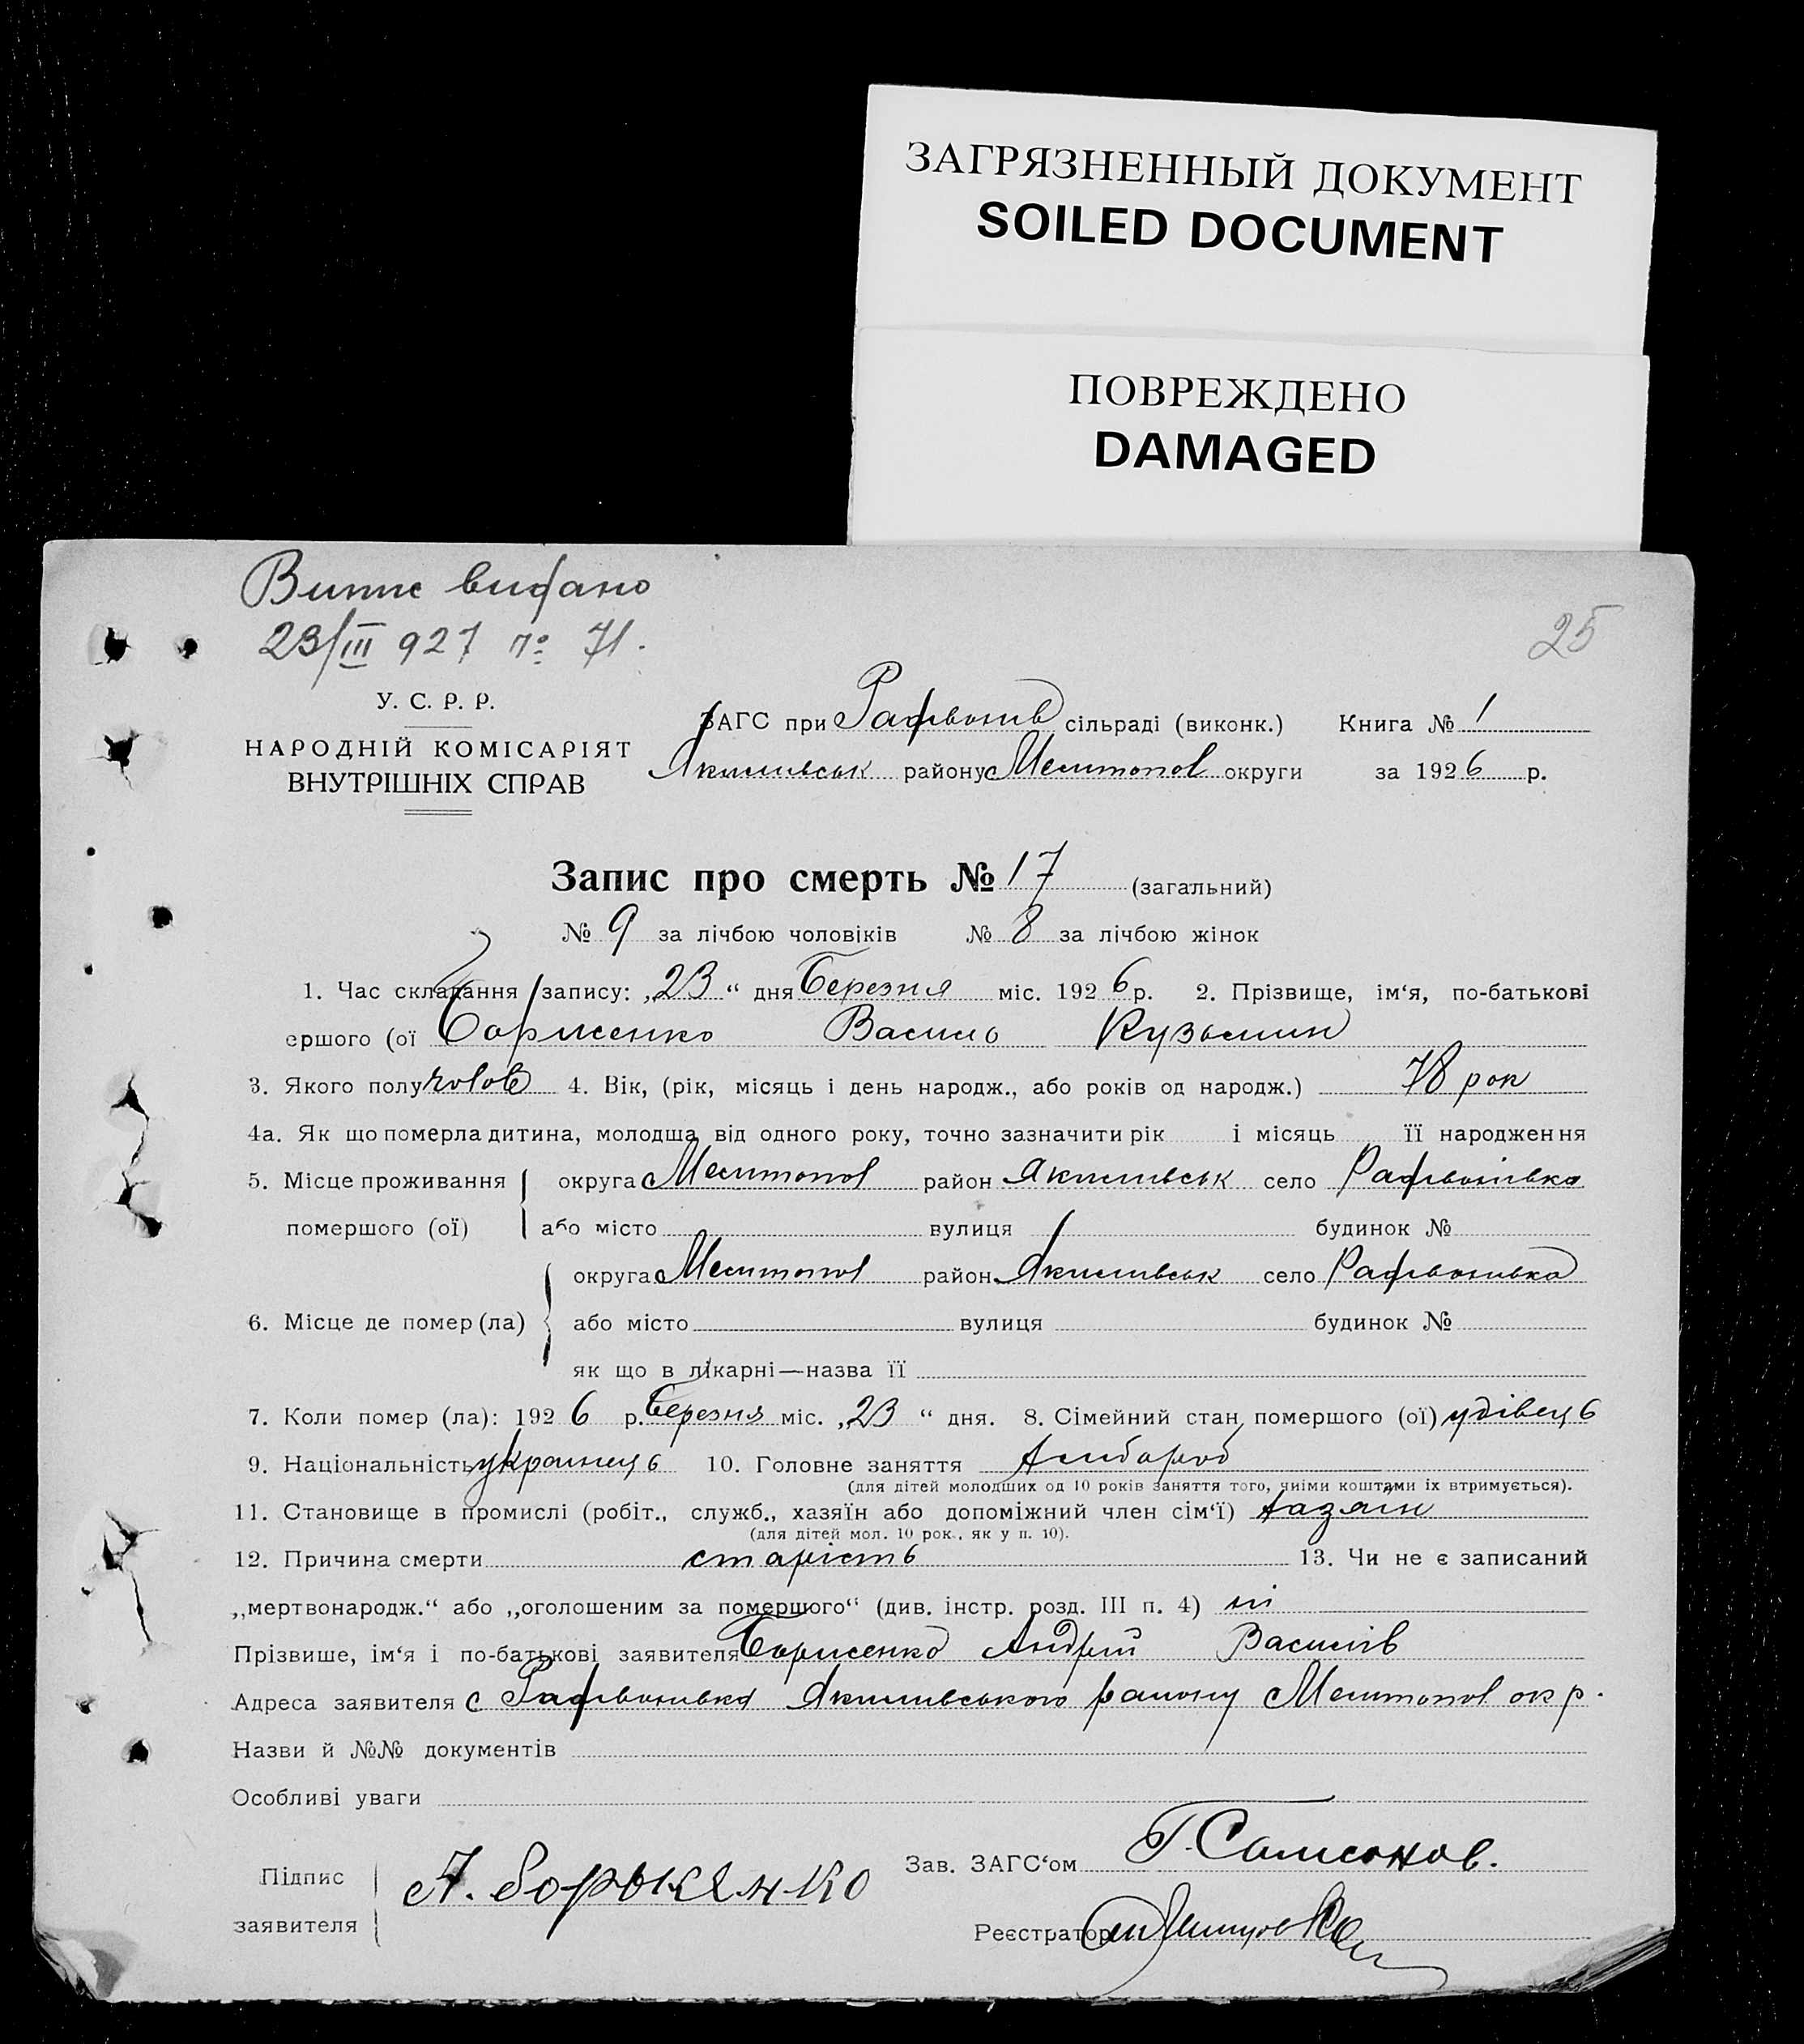 ЗАГРЯЗНЕННЫЙ ДОКУМЕНТ
SOILED DOCUMENT
ПОВРЕЖДЕНО
DAMAGED
Випис видано
23/III 927 № 71.
25
У. С. Р. Р.
НАРОДНІЙ КОМІСАРІЯТ
ВНУТРІШНІХ СПРАВ
ЗАГС при сільраді (виконк.) Книга № 1
Якимівськ району Мелитопол округи за 1926 р.
Запис про смерть № 17 (загальний)
№ 9 за лічбою чоловіків № 8 за лічбою жінок
1. Час складання запису: „23“ дня Березня міс. 1926 р. 2. Прізвище, ім‘я, по-батькові
ершого (ої Борисенко Василь Кузьмин
3. Якого полу чолов 4. Вік, (рік, місяць і день народж., або років од народж.) 78 рок
4а. Як що померла дитина, молодша від одного року, точно зазначити рік і місяць її народження
5. Місце проживання округа Мелитопол район Якимівськ село
помершого (ої) або місто вулиця будинок №
округа Мелитопол район Якимівськ село
6. Місце де помер (ла) або місто вулиця будинок №
як що в лікарні—назва її
7. Коли помер (ла): 1926 р. Березня міс. „23“ дня. 8. Сімейний стан помершого (ої) удівець
9. Національність українець 10. Головне заняття хлібороб
(для дітей молодших од 10 років заняття того, чиїми коштами їх втримується).
11. Становище в промислі (робіт., служб., хазяїн або допоміжний член сім‘ї) хазяїн
(для дітей мол. 10 рок., як у п. 10).
12. Причина смерти старість 13. Чи не є записаний
„мертвонародж.“ або „оголошеним за помершого“ (див. інстр. розд. III п. 4) ні
Прізвише, ім‘я і по-батькові заявителя Борисенко Андрій Василів
Адреса заявителя с Якимівського району Мелитопол окр.
Назви й №№ документів
Особливі уваги
Підпис А. Борысенко Зав. ЗАГС‘ом Г. Самсонов.
заявителя
Реєстратор